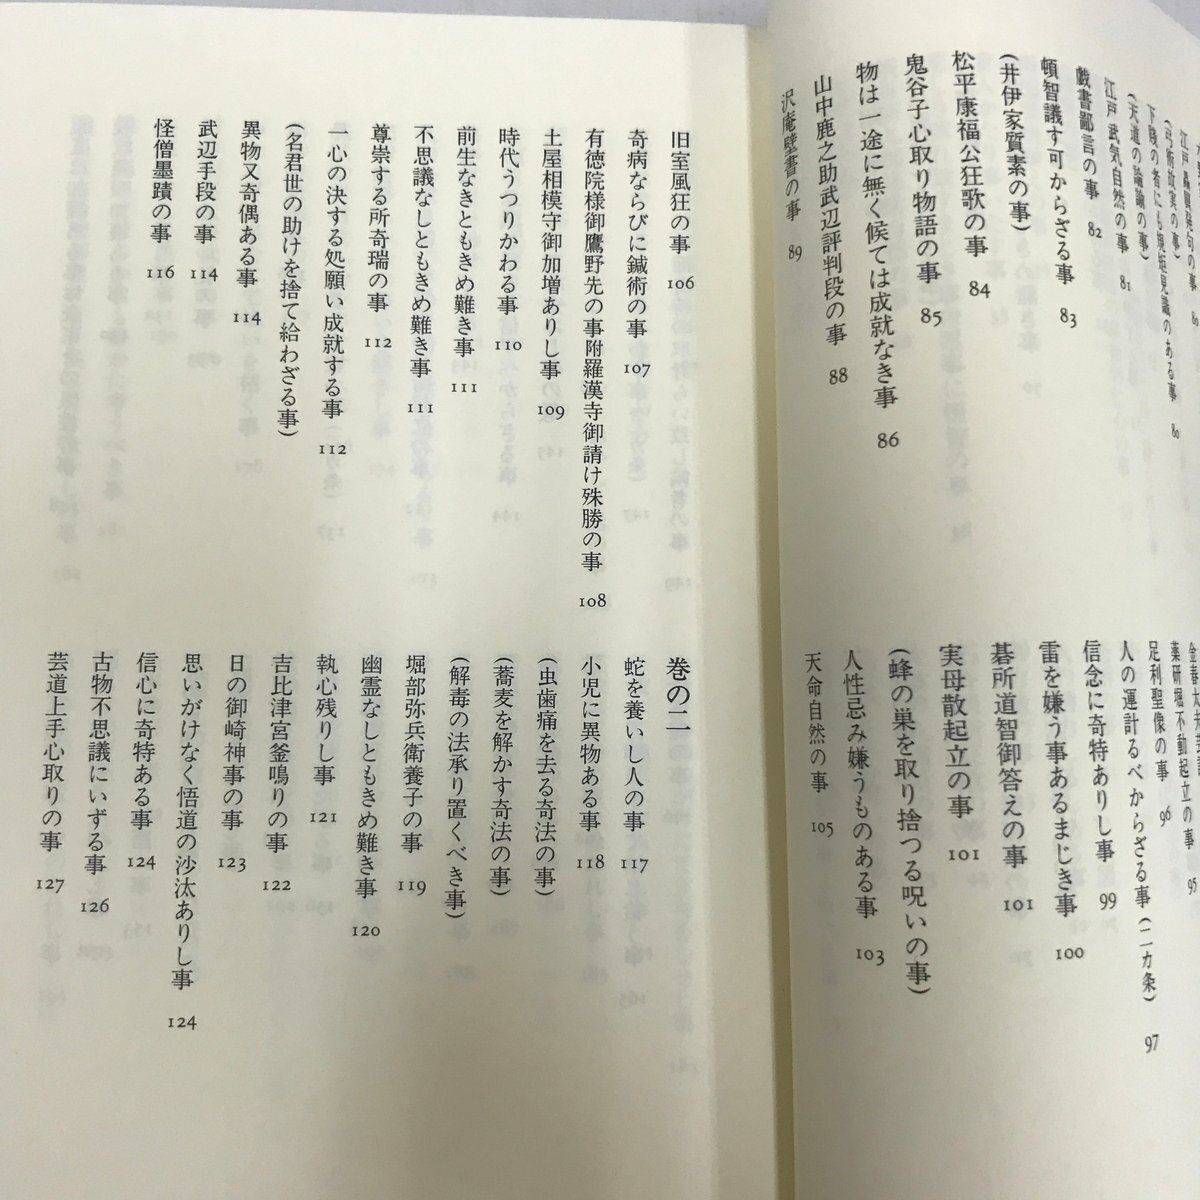 下賤の者にも廉恥見識のある事 80
(天道の論論の事)
江戸武気自然の事 81
戯書鄙言の事 82
頓智議す可からざる事 83
(井伊家質素の事)
松平康福公狂歌の事 84
鬼谷子心取り物語の事 85
物は一途に無く候ては成就なき事 86
山中鹿之助武辺評判段の事 88
沢庵壁書の事 89
薬研堀不動起立の事 95
足利聖像の事 96
人の運計るべからざる事(二カ条) 97
信念に奇特ありし事 99
雷を嫌う事あるまじき事 100
碁所道智御答えの事 101
実母散起立の事 101
(蜂の巣を取り捨つる呪いの事)
人性忌み嫌うものある事 103
天命自然の事 105
旧室風狂の事 106
奇病ならびに鍼術の事 107
有徳院様御鷹野先の事附羅漢寺御請け殊勝の事 108
土屋相模守御加増ありし事 109
時代うつりかわる事 110
前生なきともきめ難き事 111
不思議なしともきめ難き事 111
尊崇する所奇瑞の事 112
一心の決する処願い成就する事 112
(名君世の助けを捨て給わざる事)
異物又奇偶ある事 114
武辺手段の事 114
怪僧墨蹟の事 116
巻の二
蛇を養いし人の事 117
小児に異物ある事 118
(虫歯痛を去る奇法の事)
(蕎麦を解かす奇法の事)
(解毒の法承り置くべき事)
堀部弥兵衛養子の事 119
幽霊なしともきめ難き事 120
執心残りし事 121
吉比津宮釜鳴りの事 122
日の御崎神事の事 123
思いがけなく悟道の沙汰ありし事 124
信心に奇特ある事 124
古物不思議にいずる事 126
芸道上手心取りの事 127